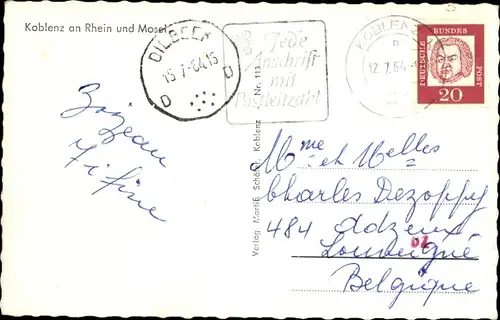 Koblenz an Rhein und Mosel
DILBEEK
13-7-64.15
D D
Jede
Anschrift
mit
Postleitzahl
KOBLENZ
n
12.7.64
DEUTSCHE BUNDES POST
20
Fifine
Verlag Martin Schöfer, Koblenz Nr. 111
Mme et Melles
Charles Dezoppy
484
Louveigné
Belgique